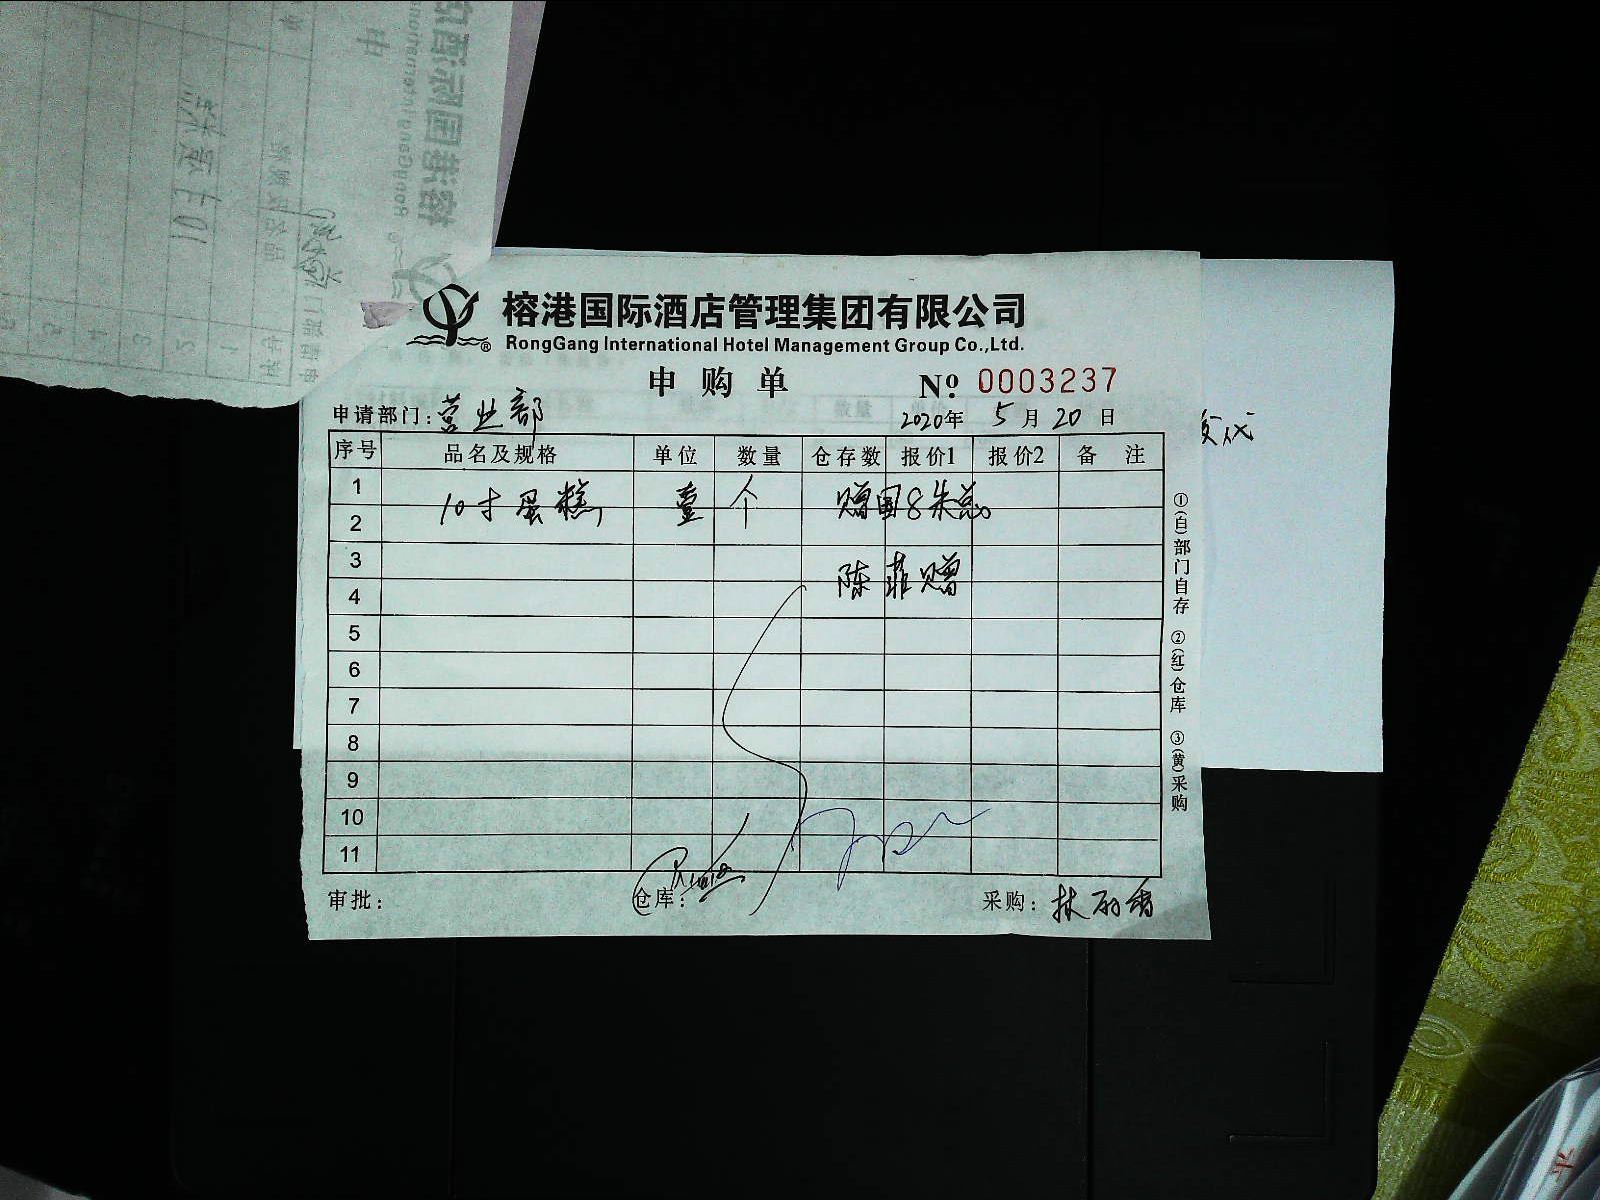 榕港国际酒店管理集团有限公司
RongGang International Hotel Management Group Co.,Ltd.
申购单 Nº 0003237
申请部门：营业部 2020年 5月 20日
序号 品名及规格 单位 数量 仓存数 报价1 报价2 备 注
1
10寸蛋糕 壹 个 赠国8朱总
2
3
陈菲赠
4
5
6
7
8
9
10
11
审批： 仓库： 采购：林丽
①(白)部门自存 ②(红)仓库 ③(黄)采购